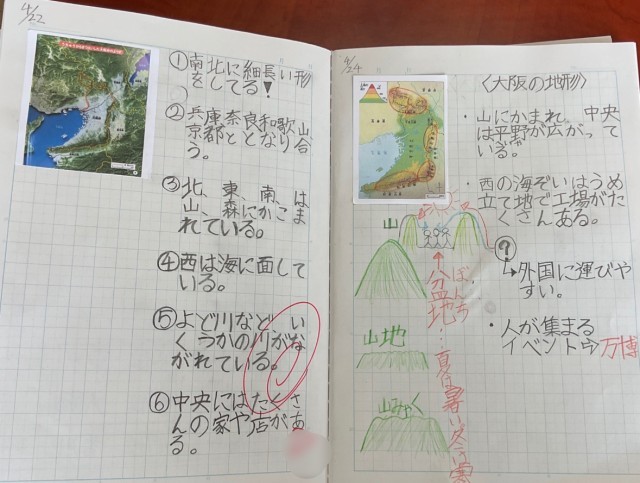 4/22
① 南北に細長い形
をしてる!
② 兵庫奈良和歌山
京都ととなり合
う。
③ 北、東、南、は
山、森にかこま
れている。
④ 西は海に面して
いる。
⑤ よど川など、い
くつかの川がな
がれている。
⑥ 中央にはたくさ
んの家や店があ
る。
4/24
〈大阪の地形〉
・山にかまれ、中央
は平野が広がって
いる。
・西の海ぞいはうめ
立て地で工場がた
くさんある。
?
↳外国に運びや
すい。
・人が集まる
イベント⇨万博
山
↑
盆地
ぼんち
…夏は暑い冬う寒
山地
山みゃく